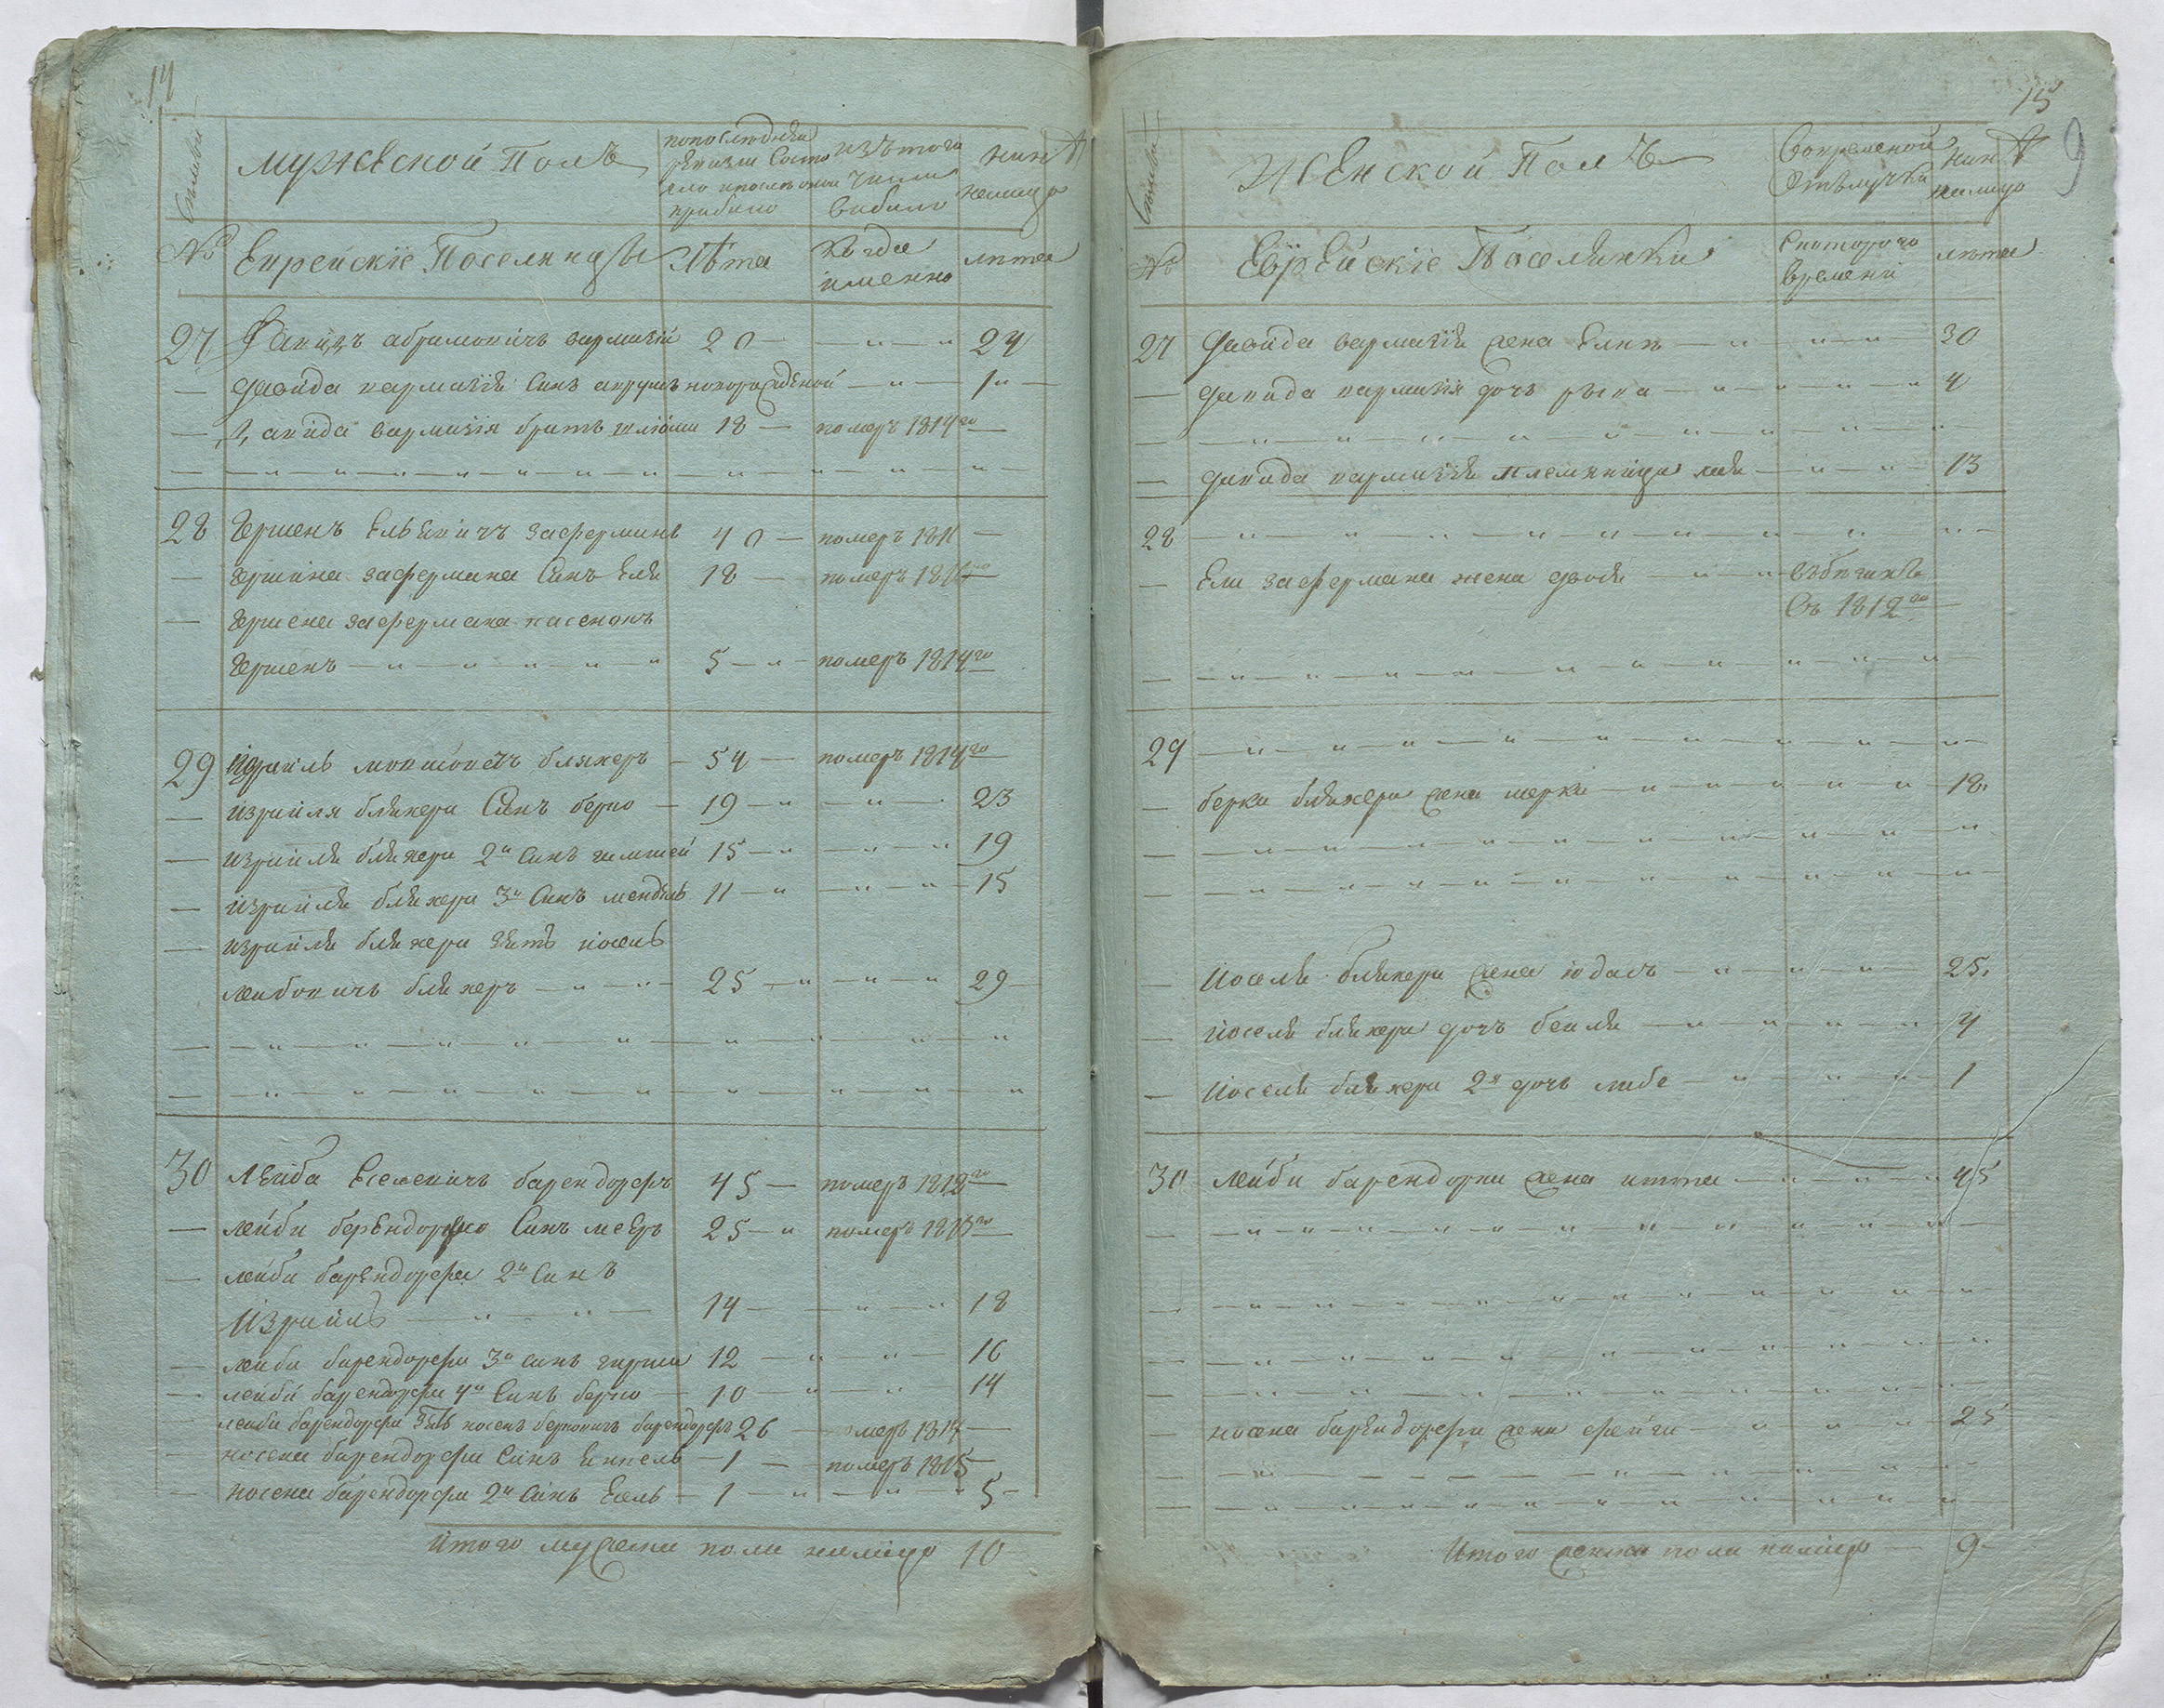 14
Семьи
мужеской Полъ
по последней
ревизии состо
яло и после оной
прибыло
изъ того
числа
выбыло
ныне
налицо
№
Еврейскіе Поселянцы
Лѣта
Когда
именно
лѣта
27 Давидъ абрамовичъ вармакій 20 — — „ — „ 24
— Давида вармакія Синъ новорожденной — „ — 1 „ —
— Давида вармакія братъ 18 — померъ 1814го —
— — „ — „ — „ — „ — „ — „ — „ — „ — „
28 Гершенъ Ельевичъ Заферманъ 40 — померъ 1811 —
— Гершена Зафермана Синъ Еля 18 — померъ го —
— Гершена Зафермана пасенокъ
Гершенъ — „ — „ — „ — „ — „ 5 — „ — померъ 1814го
29 Израиль мовшовичъ бляхеръ — 54 — померъ 1814го —
— Израиля бляхера Синъ берко — 19 — „ — „ — 23
— Израиля бляхера 2й Синъ 15 — „ — „ — „ 19
— Израиля бляхера 3й Синъ мендель 11 — „ — „ — „ — 15
— Израиля бляхера зять иосель
лейбовичъ бляхеръ — „ — „ — 25 — „ — „ — „ 29 —
— — „ — „ — „ — „ — „ — „ — „ — „ — „
— — „ — „ — „ — „ — „ — „ — „ — „ — „
30 Лейба барендорфъ 45 — померъ 1812го —
— лейби берендорфа Синъ мееръ 25 — „ померъ го —
— лейби барендорфа 2й Синъ
Израиль — „ — „ — 14 — — „ — „ 18
— лейби барендорфа 3й Синъ герша 12 — „ — „ — 16
— лейби барендорфа 4й Синъ берко — 10 — „ — „ — 14
лейби барендорфа зять носенъ берковичъ барендорфъ 26 — меръ 1814 —
— носена барендорфа Синъ — 1 — — померъ 1815 —
— носена барендорфа 2й Синъ — 1 — „ — „ — „ 5 —
Итого мужеска пола налицо 10
15
9
Семьи
Женской Полъ
Во временной
отлучке
ныне
налицо
№
Еврейскіе Поселянки
С котораго
времени
лѣта
27 Давида вармакія жена Елка — „ — „ — „ — 30
— Давида вармакія дочь рыка — „ — „ — „ — „ 4
— — „ — „ — „ — „ — „ — „ — „ — „ — „
— Давида вармакія племяница — „ — „ — 13
28 — „ — „ — „ — „ — „ — „ — „ — „ — „
— Ели Зафермана жена двойя — „ — „ — въ бегахъ
Съ 1812го —
— — „ — „ — „ — „ — „ — „ — „ — „ — „
29 — „ — „ — „ — „ — „ — „ — „ — „ — „
— берки бляхера жена мерка — „ — „ — „ — „ — 18.
— — „ — „ — „ — „ — „ — „ — „ — „ — „
— — „ — „ — „ — „ — „ — „ — „ — „ — „
— Иоселя бляхера жена юдасъ — „ — „ — „ — 25.
— Иоселя бляхера дочь бейля — „ — „ — „ — „ 4
— Иоселя бляхера 2я дочь либе — „ — „ — „ 1
30 лейби барендорфа жена итта — „ — „ — „ — „ 45
— — „ — „ — „ — „ — „ — „ — „ — „ — „
— — „ — „ — „ — „ — „ — „ — „ — „ — „
— — „ — „ — „ — „ — „ — „ — „ — „ — „
— — „ — „ — „ — „ — „ — „ — „ — „ — „
— носена барендорфа жена фейга — „ — „ — „ — 25
— — „ — „ — „ — „ — „ — „ — „ — „ — „
— — „ — „ — „ — „ — „ — „ — „ — „ — „
Итого женска пола налицо — 9